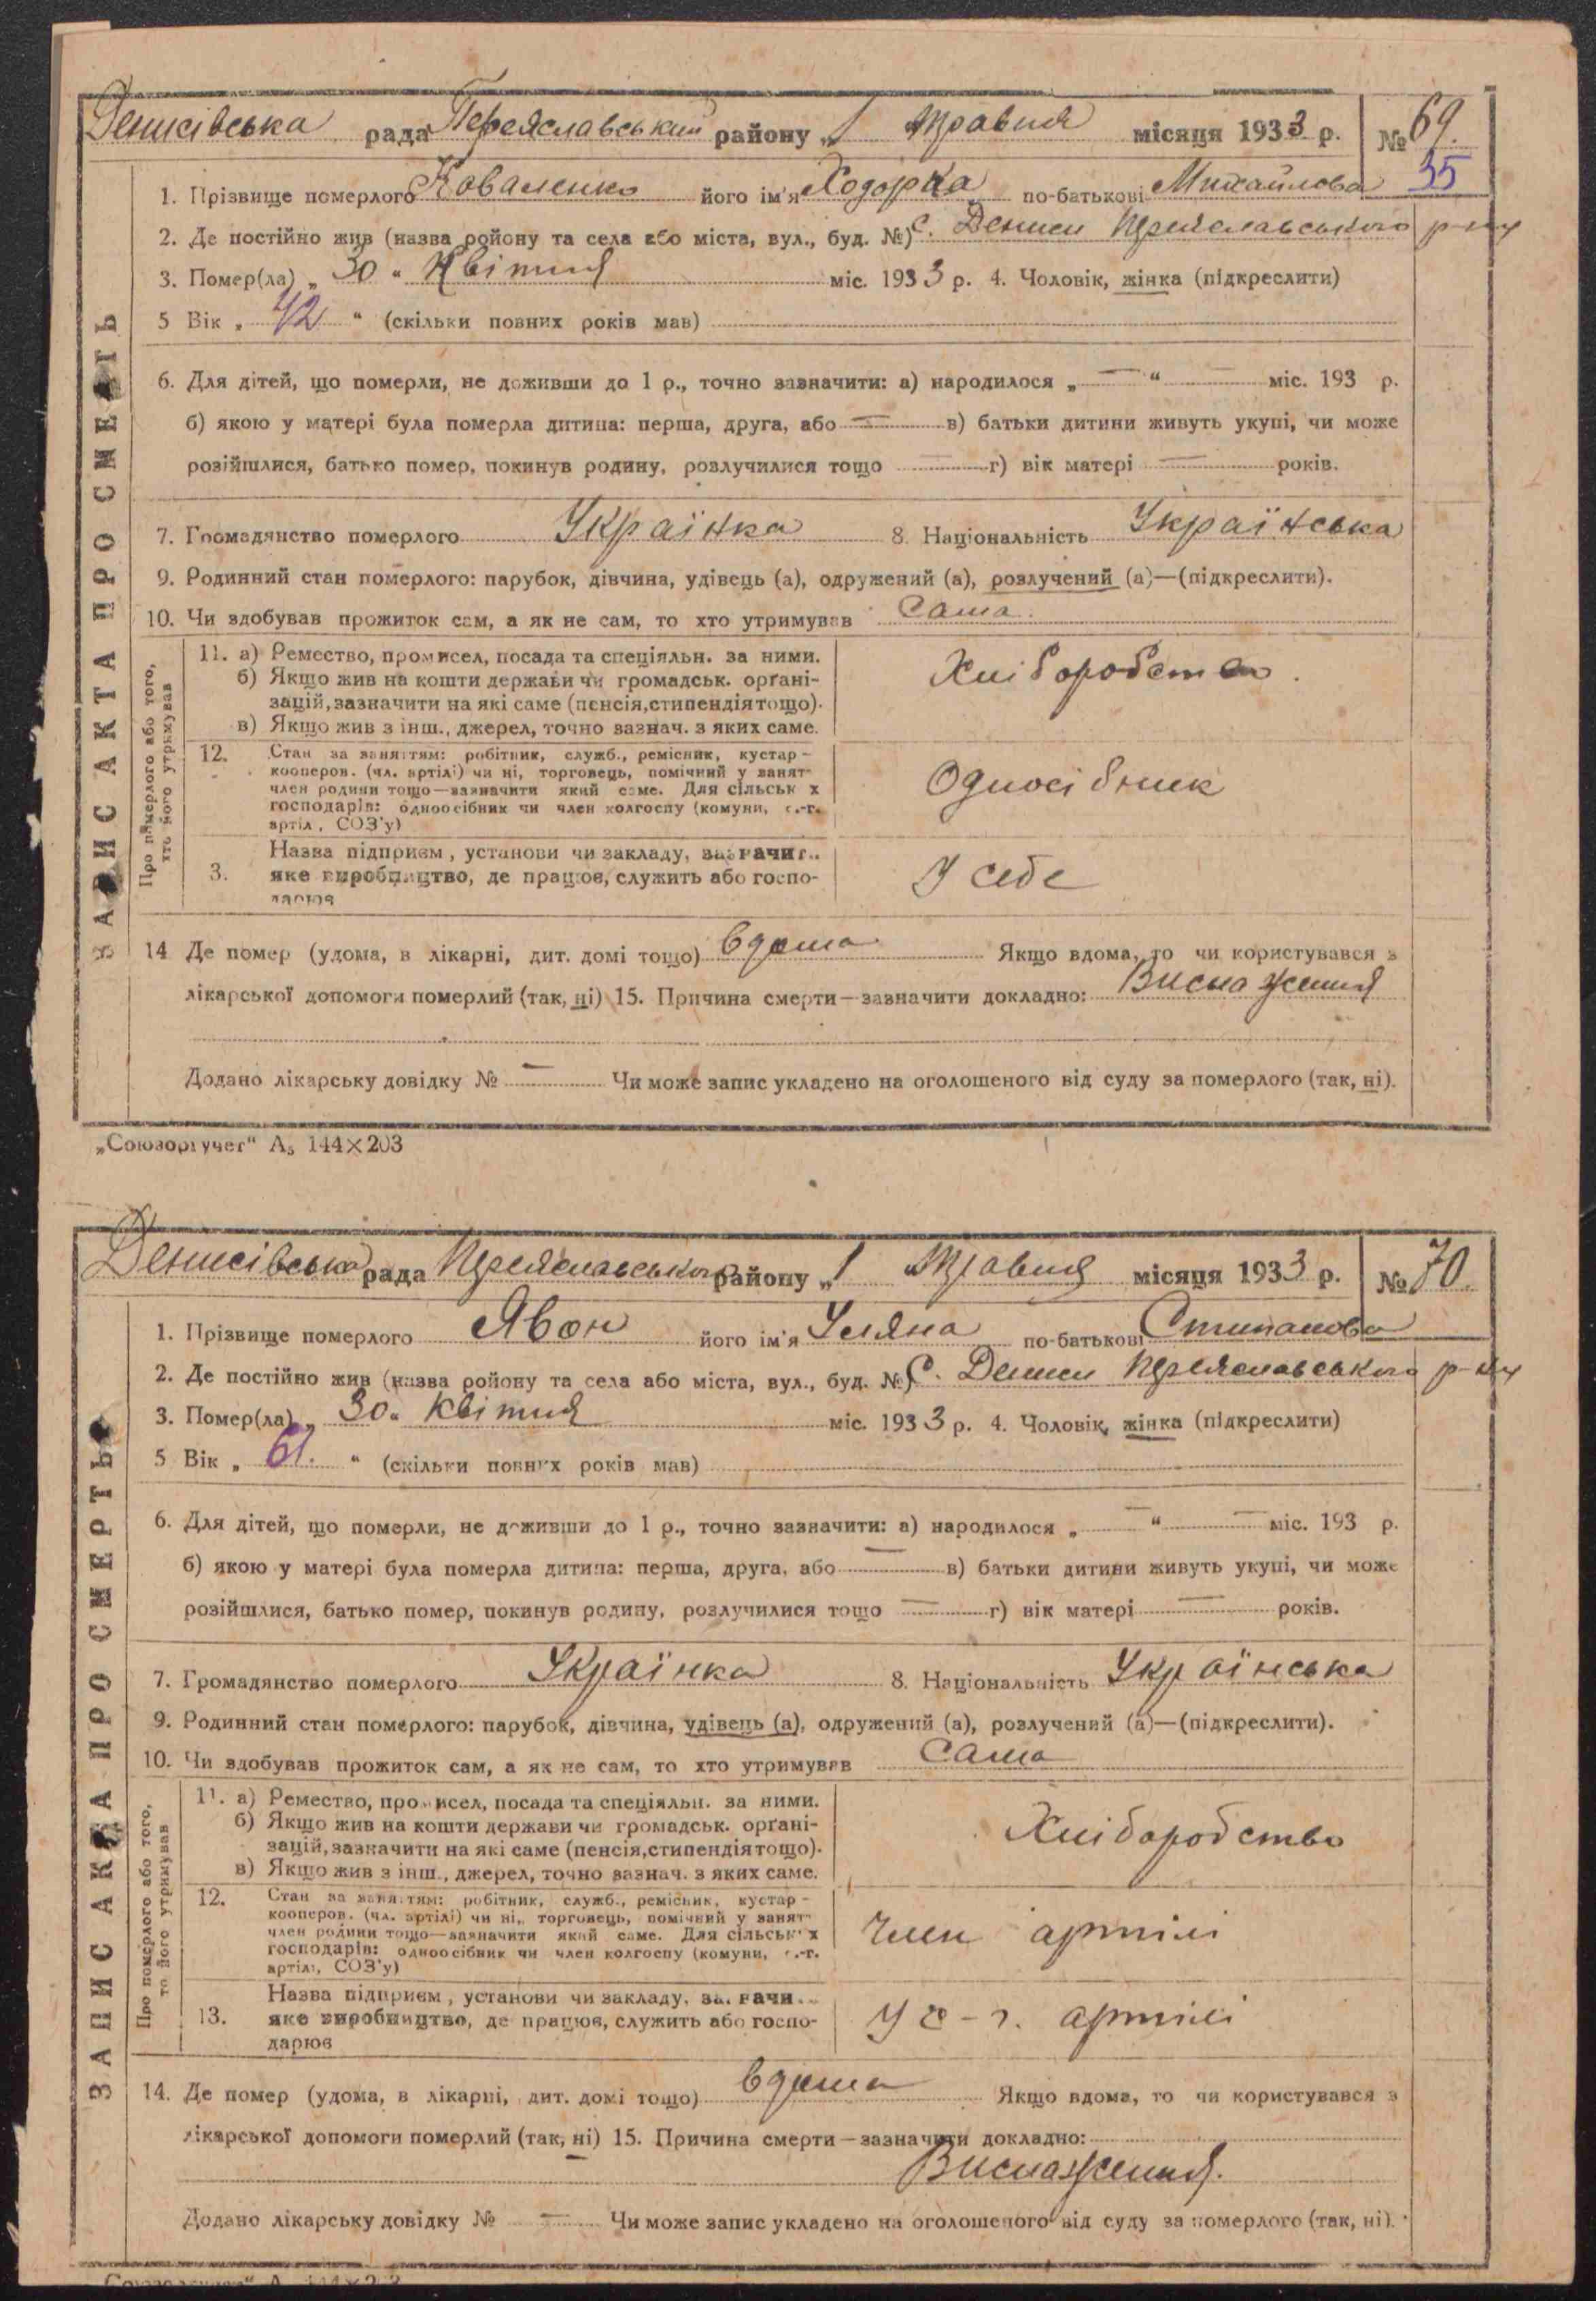 Денисівська рада Переяславський району „1 травня місяця 1933 р. № 69.
35
1. Прізвище померлого Коваленко його ім'я Ходорка по-батькові Михайлова
2. Де постійно жив (назва ройону та села або міста, вул., буд. №) с. Дениси Переяславського р-ну
3. Помер(ла) „ 30 “ Квітня міс. 1933 р. 4. Чоловік, жінка (підкреслити)
5 Вік „ 42 “ (скільки повних років мав)
6. Для дітей, що померли, не доживши до 1 р., точно зазначити: а) народилося „ — “ — міс. 193 р.
б) якою у матері була померла дитина: перша, друга, або — в) батьки дитини живуть укупі, чи може
розійшлися, батько помер, покинув родину, розлучилися тощо — г) вік матері — років.
7. Громадянство померлого Українка 8. Національність Українська
9. Родинний стан померлого: парубок, дівчина, удівець (а), одружений (а), розлучений (а)—(підкреслити).
10. Чи здобував прожиток сам, а як не сам, то хто утримував Сама
ЗАПИС АКТА ПРО СМЕРТЬ
Про померлого або того,
хто його утримував
11. а) Ремество, промисел, посада та спеціяльн. за ними.
б) Якщо жив на кошти держави чи громадськ. орґані-
зацій, зазначити на які саме (пенсія, стипендія тощо).
в) Якщо жив з інш., джерел, точно зазнач. з яких саме.
Хліборобство.
12. Стан за заняттям: робітник, служб., ремісник, кустар -
кооперов. (чл. артілі) чи ні, торговець, помічний у занят-
член родини тощо—зазначити який саме. Для сільськ х
господарів: одноосібник чи член колгоспу (комуни, с.-г.
артіл, СОЗ'у)
Односібник
Назва підприєм, установи чи закладу, зазначит..
3. яке виробництво, де працює, служить або госпо-
дарює
У себе
14 Де помер (удома, в лікарні, дит. домі тощо) вдома Якщо вдома, то чи користувався з
лікарської допомоги померлий (так, ні) 15. Причина смерти—зазначити докладно: Виснаження
Додано лікарську довідку № — Чи може запис укладено на оголошеного від суду за померлого (так, ні).
„Союзоргучет“ А5 144×203
Денисівська рада Переяславського району „1 травня місяця 1933 р. № 70.
1. Прізвище померлого Явон його ім'я Уляна по-батькові Стипанова
2. Де постійно жив (назва ройону та села або міста, вул., буд. №) с. Дениси Переяславського р-ну
3. Помер(ла) „ 30 “ Квітня міс. 1933 р. 4. Чоловік, жінка (підкреслити)
5 Вік „ 61. “ (скільки повних років мав)
6. Для дітей, що померли, не доживши до 1 р., точно зазначити: а) народилося „ — “ — міс. 193 р.
б) якою у матері була померла дитина: перша, друга, або — в) батьки дитини живуть укупі, чи може
розійшлися, батько помер, покинув родину, розлучилися тощо — г) вік матері — років.
7. Громадянство померлого Українка 8. Національність Українська
9. Родинний стан померлого: парубок, дівчина, удівець (а), одружений (а), розлучений (а)—(підкреслити).
10. Чи здобував прожиток сам, а як не сам, то хто утримував Сама
ЗАПИС АКТА ПРО СМЕРТЬ
Про померлого або того,
то його утримував
11. а) Ремество, промисел, посада та спеціяльн. за ними.
б) Якщо жив на кошти держави чи громадськ. орґані-
зацій, зазначити на які саме (пенсія, стипендія тощо).
в) Якщо жив з інш., джерел, точно зазнач. з яких саме.
Хліборобство
12. Стан за заняттям: робітник, служб., ремісник, кустар -
кооперов. (чл. артілі) чи ні, торговець, помічний у занят-
член родини тощо—зазначити який саме. Для сільськ х
господарів: одноосібник чи член колгоспу (комуни, с.-г.
артіл, СОЗ'у)
Член артілі
Назва підприєм, установи чи закладу, зазначи..
13. яке виробництво, де працює, служить або госпо-
дарює
У с-г. артілі
14. Де помер (удома, в лікарні, дит. домі тощо) вдома Якщо вдома, то чи користувався з
лікарської допомоги померлий (так, ні) 15. Причина смерти—зазначити докладно:
Виснаження.
Додано лікарську довідку № — Чи може запис укладено на оголошеного від суду за померлого (так, ні).